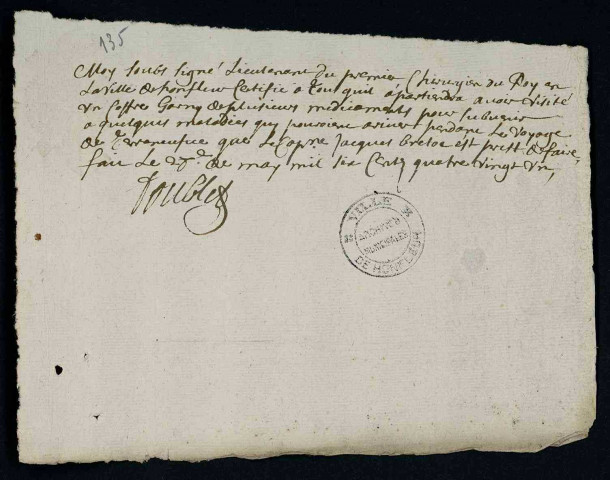 135
Moy soubs signé Lieutenant du premier Chirurgien du Roy en
La ville de honfleur Certifie a tous quil apartiendra avoir visité
un Coffre Garny de plusieurs medicaments pour subvenir
a quelques maladies quy pouroient ariver pendant Le voyage
de Terreneufve que Le Capne Jacques Bretoc est prest de faire,
fait Le de may mil six Cents quatre vingt un
Toublet
VILLE
ARCHIVES
MUNICIPALES
DE HONFLEUR